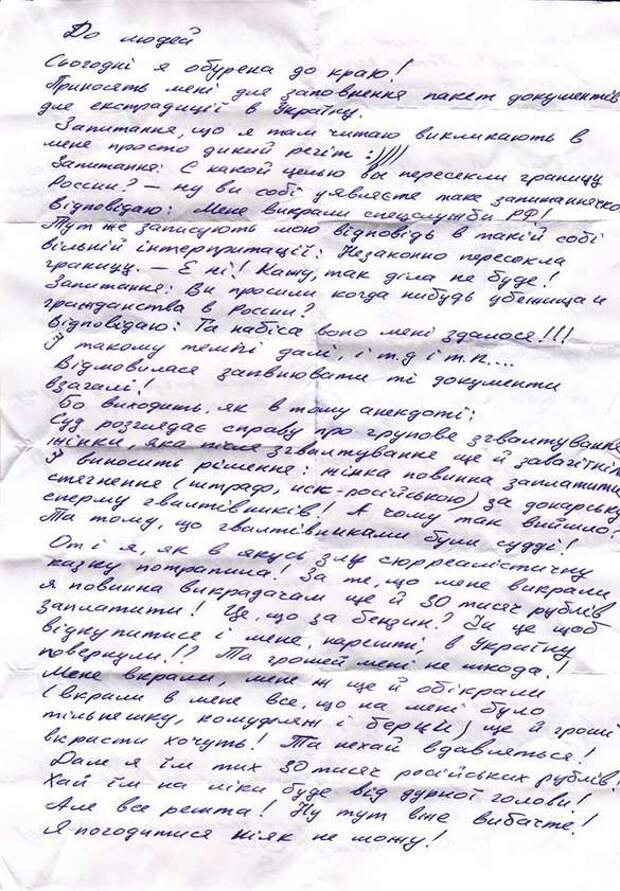 До людей
Сьогодні я обурена до краю!
Приносять мені для заповнення пакет документів
для екстрадиції в Україну.
Запитання, що я там читаю викликають в
мене просто дикий регіт :))))
Запитання: С какой целью вы пересекли границу
России? – ну ви собі уявляєте таке запитаннячко
Відповідаю: Мене викрали спецслужби РФ!
Тут же записують мою відповідь в такій собі
вільній інтерпритації: Незаконно пересекла
границу. – Е ні! Кажу, так діла не буде!
Запитання: Ви просили когда нибудь убежища и
гражданства в России?
Відповідаю: Та набіса воно мені здалося!!!
У такому темпі далі, і т.д і т.п....
Відмовилася заповнювати ті документи
взагалі!
Бо виходить, як в тому анекдоті:
Суд розглядає справу про групове згвалтування
жінки, яка після згвалтування ще й завагітніла
У виносить рішення: жінка повинна заплатити
стягнення (штраф, иск-російською) за донарську
сперму гвалтівників! А чому так вийшло?
Та тому, що гвалтівниками були судді!
От і я, як в якусь злу сюрреалістичну
казку потрапила! За те, що мене викрали
я повинна викрадачам ще й 30 тисяч рублів
заплатити! Це, що за бензин? Чи це щоб
відкупитися і мене, нарешті, в Україну
повернули!? Та грошей мені не шкода!
Мене вкрали, мене ж ще й обікрали
(вкрали в мене все, що на мені було
тільнешку, комуфляж і берци) ще й гроші
вкрасти хочуть! Та нехай вдавляться!
Дам я їм тих 30 тисяч російських рублів!
Хай їм на ліки буде від дурної голови!
Але все решта! Ну тут вже вибачте!
Я погодитися ніяк не можу!